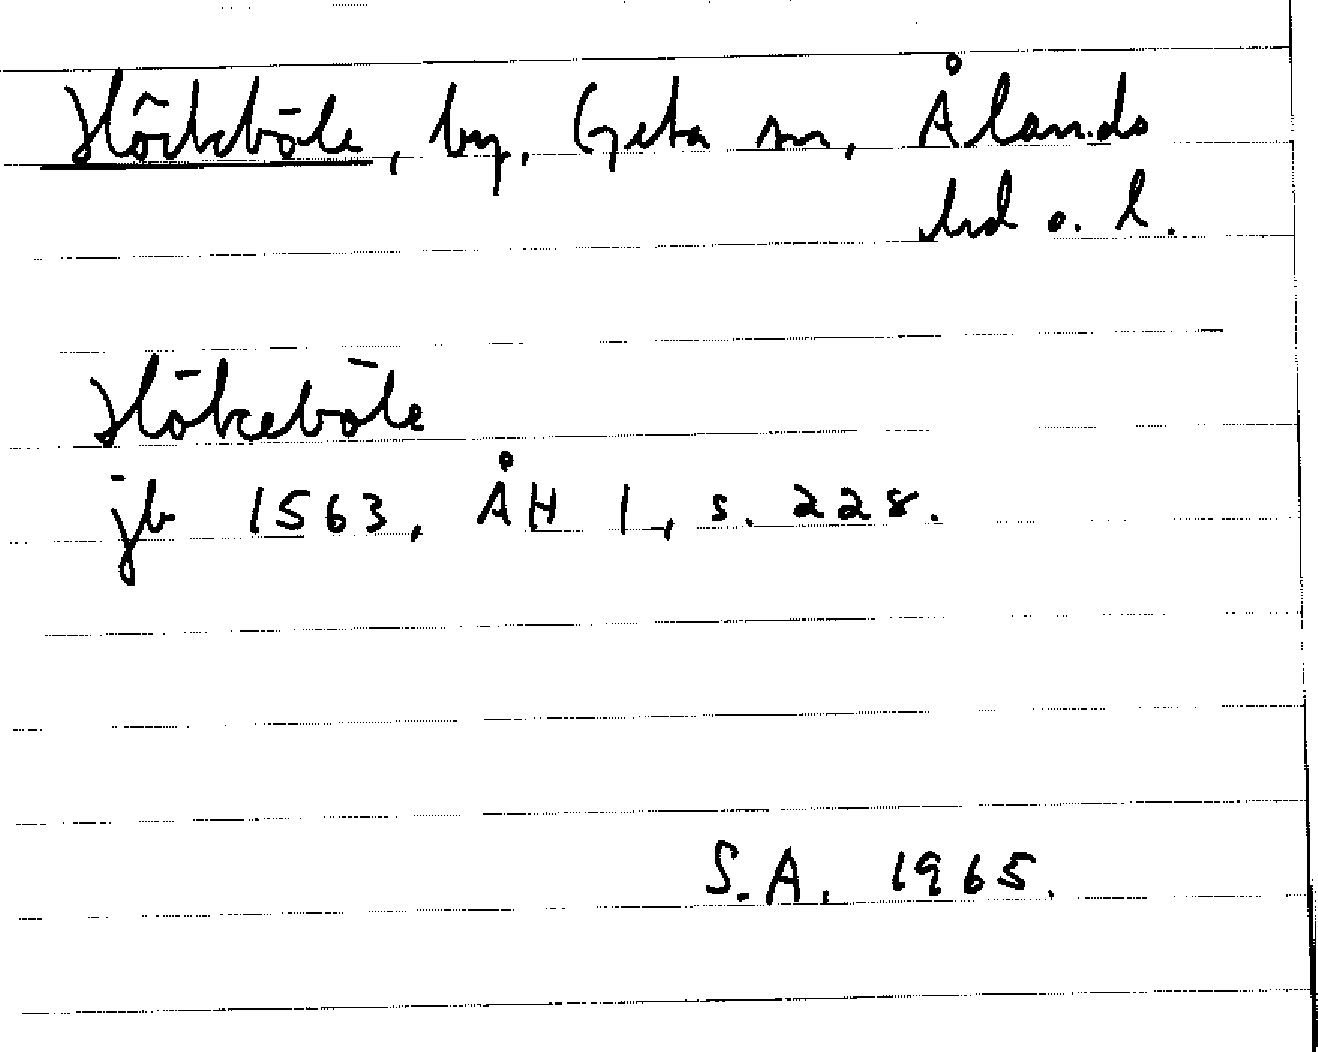 Hökböle, by, Geta sn, Ålands
hd o. l.
Hökeböle
jb 1563, ÅH 1, s. 228.
S.A. 1965.